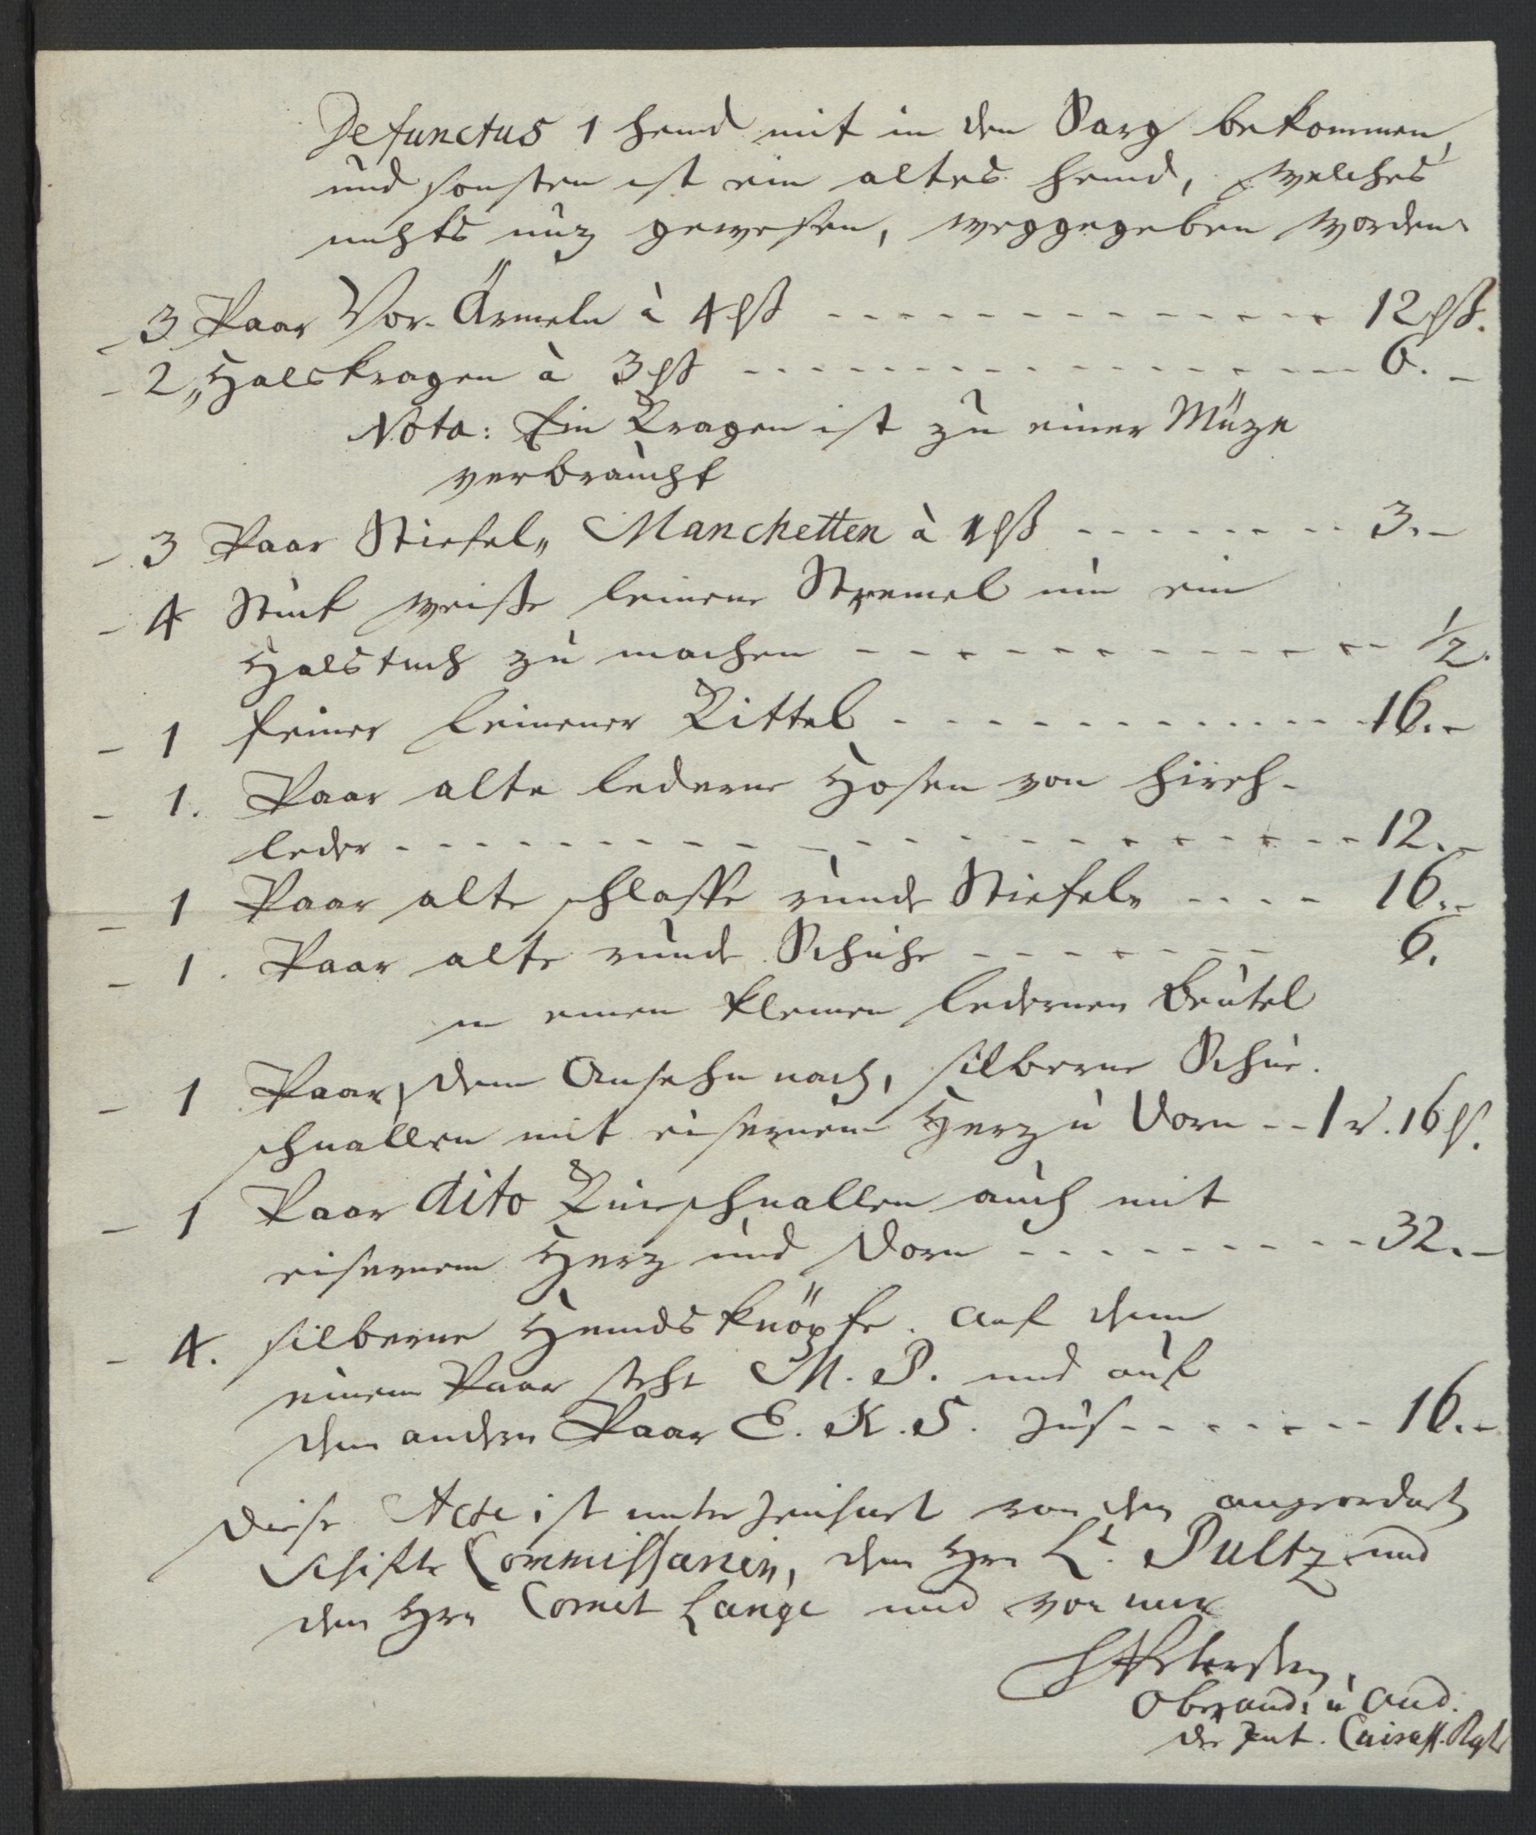 Defunctus 1 Hemd mit in den Sarg bekommen,
und sonsten ist ein altes Hemd, welches
nichts nüz gewesen, weggegeben worden.
– 3 Paar Vor-Ärmeln à 4 ßl - - - - - - - 12 ßl.
– 2 „ Halskragen à 3 ßl - - - - - - - 6. –
Nota: Ein Kragen ist zu einer Müze
verbraucht
– 3 Paar Stiefel„ Manchetten à 1 ßl - - - - - - - 3. –
– 4 Stück weiße leinene Stremel um ein
Halstuch zu machen - - - - - - - ½.
– 1 feiner leinener Kittel - - - - - - - 16. –
– 1. Paar alte lederne Hosen von Hirch-
leder - - - - - - - 12. –
– 1 Paar alte schlaffe runde Stiefeln - - - - 16. –
– 1. Paar alte runde Schuhe - - - - - - - 6.
in einen kleinen ledernen Beutel
– 1 Paar, dem Ansehn nach, silberne Schu-
schnallen mit eisernem Herz u Dorn - - 1 r. 16 ß.
– 1 Paar dito Knieschnallen auch mit
eisernem Herz und Dorn - - - - - - - 32. –
– 4. silberne Hemdsknöpfe. auf dem
einem Paar steht M. P. und auf
dem andern Paar E. K. S. - - - - - - - 16. –
Diese Acte ist unterzeichnet von den angeordnet
Schifts Commissarien, dem Hrn Lt. Pultz und
dem Hrn Cornet Lange und von mir
Petersen,
Oberaud. u Aud.
Cuirass. Rgts